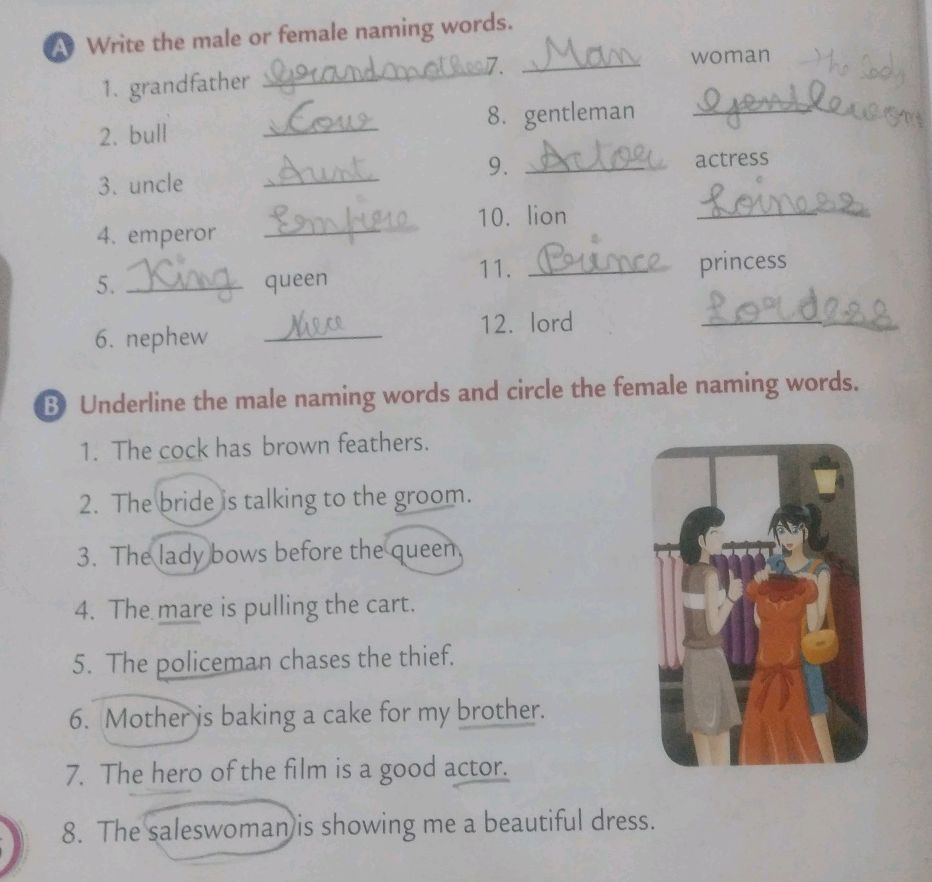 A Write the male or female naming words.
1. grandfather Grandmother
2. bull Cow
3. uncle Aunt
4. emperor Empire
5. King queen
6. nephew Niece
7. Man woman
8. gentleman gentlewom
9. Actor actress
10. lion Loiness
11. Prince princess
12. lord Lordess
B Underline the male naming words and circle the female naming words.
1. The cock has brown feathers.
2. The bride is talking to the groom.
3. The lady bows before the queen.
4. The mare is pulling the cart.
5. The policeman chases the thief.
6. Mother is baking a cake for my brother.
7. The hero of the film is a good actor.
8. The saleswoman is showing me a beautiful dress.